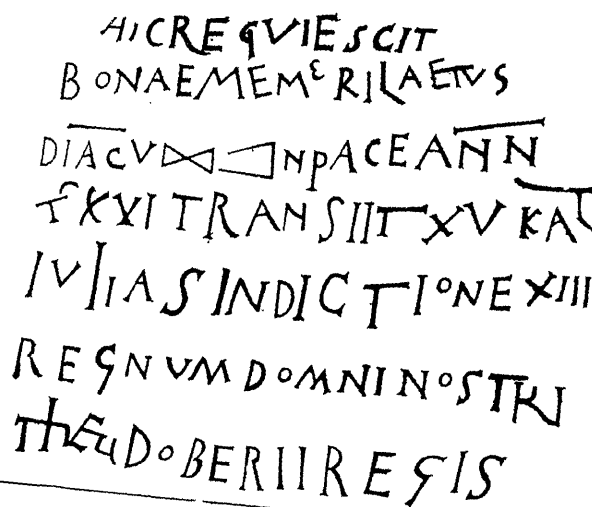 HIC REQVIESCIT
BONAE MEMERI LAETVS
DIACV IN PACE ANN
XXVI TRANSIIT XV KAL
IVLIAS INDICTIONE XIII
REGNVM DOMNI NOSTRI
THEUDOBERTI REGIS